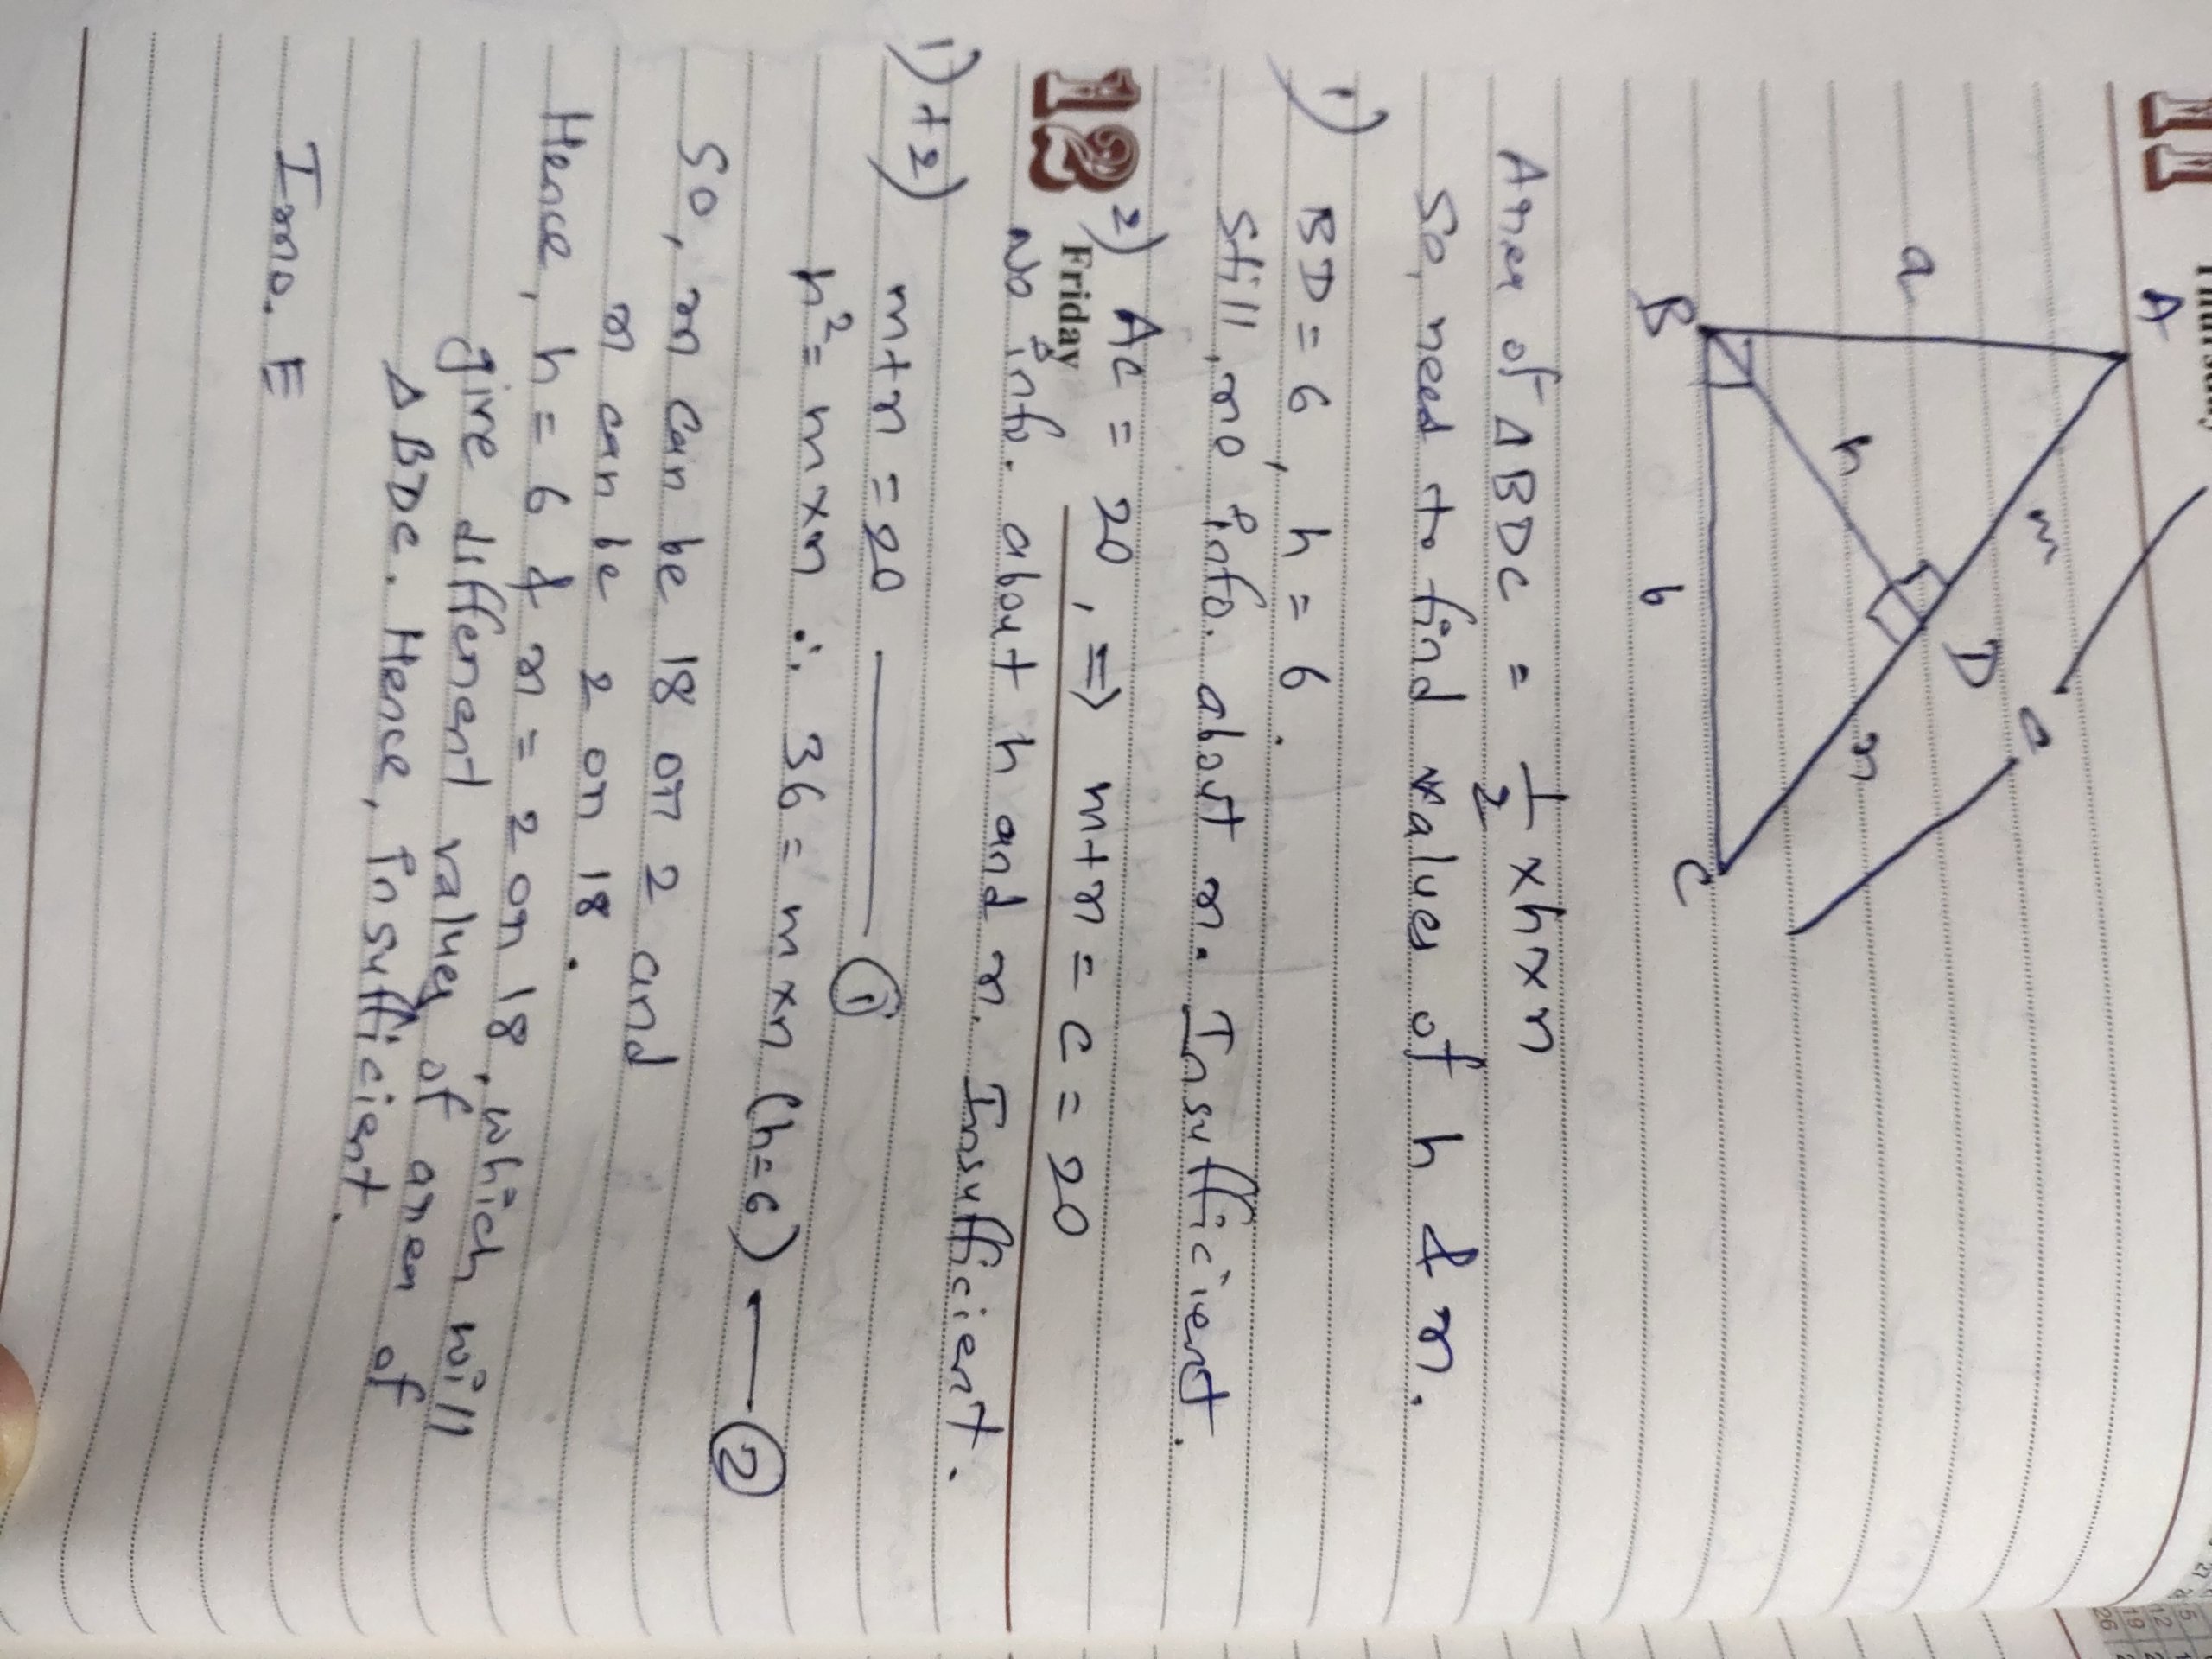 11
A
a
m
D
h
c
n
B
b
C
Area of Δ BDC = 1/2 × h × n
So, need to find values of h & n.
1) BD = 6, h = 6.
Still, no info. about n. Insufficient.
2) AC = 20, => m+n = c = 20
12
Friday
No info. about h and n. Insufficient.
1)+2) m+n = 20 — ①
h² = m×n ∴ 36 = m×n (h=6) — ②
So, m can be 18 or 2 and
n can be 2 or 18.
Hence, h = 6 & n = 2 or 18, which will
give different values of area of
Δ BDC. Hence, Insufficient.
Imo. E